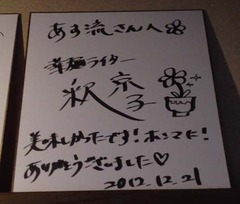 あす流さん人
薬麺ライター
釈 京子
美味しかったです！ホンマに！
ありがとうございました♡
2012.12.21